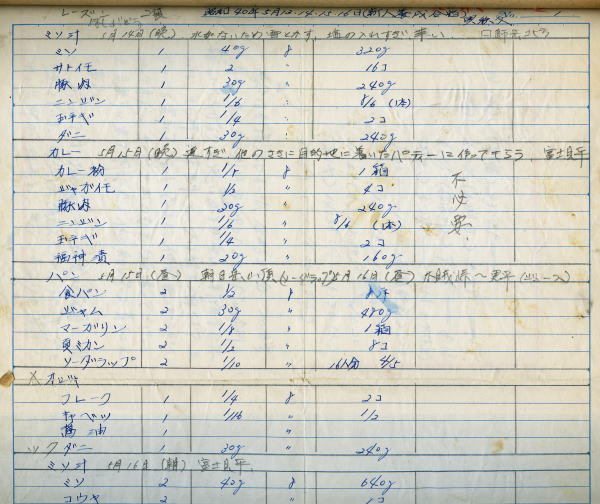 レーズン 2袋 昭和40年5月13.14.15.16日(新人養成合宿)
ミソ汁 5月14日(晩) 水がないため雪とかす、塩の入れすぎ
ミソ 1 40g 8 320g
サトイモ 1 2 〃 16コ
豚肉 1 30g 〃 240g
ニンジン 1 1/6 〃 8/6 (1本)
玉ネギ 1 1/4 〃 2コ
ダニ 1 30g 〃 240g
カレー 5月15日(晩) 遅すぎ 他のさきに目的地に着いたパーティーに作ってもらう、富士見平
カレー粉 1 1/8 8 1箱 不
ジャガイモ 1 1/2 〃 4コ 必
豚肉 1 30g 〃 240g 要
ニンジン 1 1/6 〃 8/6 (1本)
玉ネギ 1 1/4 〃 2コ
福神漬 1 20g 〃 160g
パン 5月15日(昼) 朝日 5月16日(昼)
食パン 2 1/2 8 8斤
ジャム 2 30g 〃 480g
マーガリン 2 1/8 〃 1箱
夏ミカン 2 1/2 〃 8コ
ソーダラップ 2 1/10 〃 16人分
フレーク 1 1/4 8 2コ
キャベツ 1 1/16 〃 1/2
醤油 1 〃
ツクダニ 1 30g 〃 240g
ミソ汁 5月16日(朝) 富士見平
ミソ 2 40g 8 640g
コウヤ 2 〃 1コ